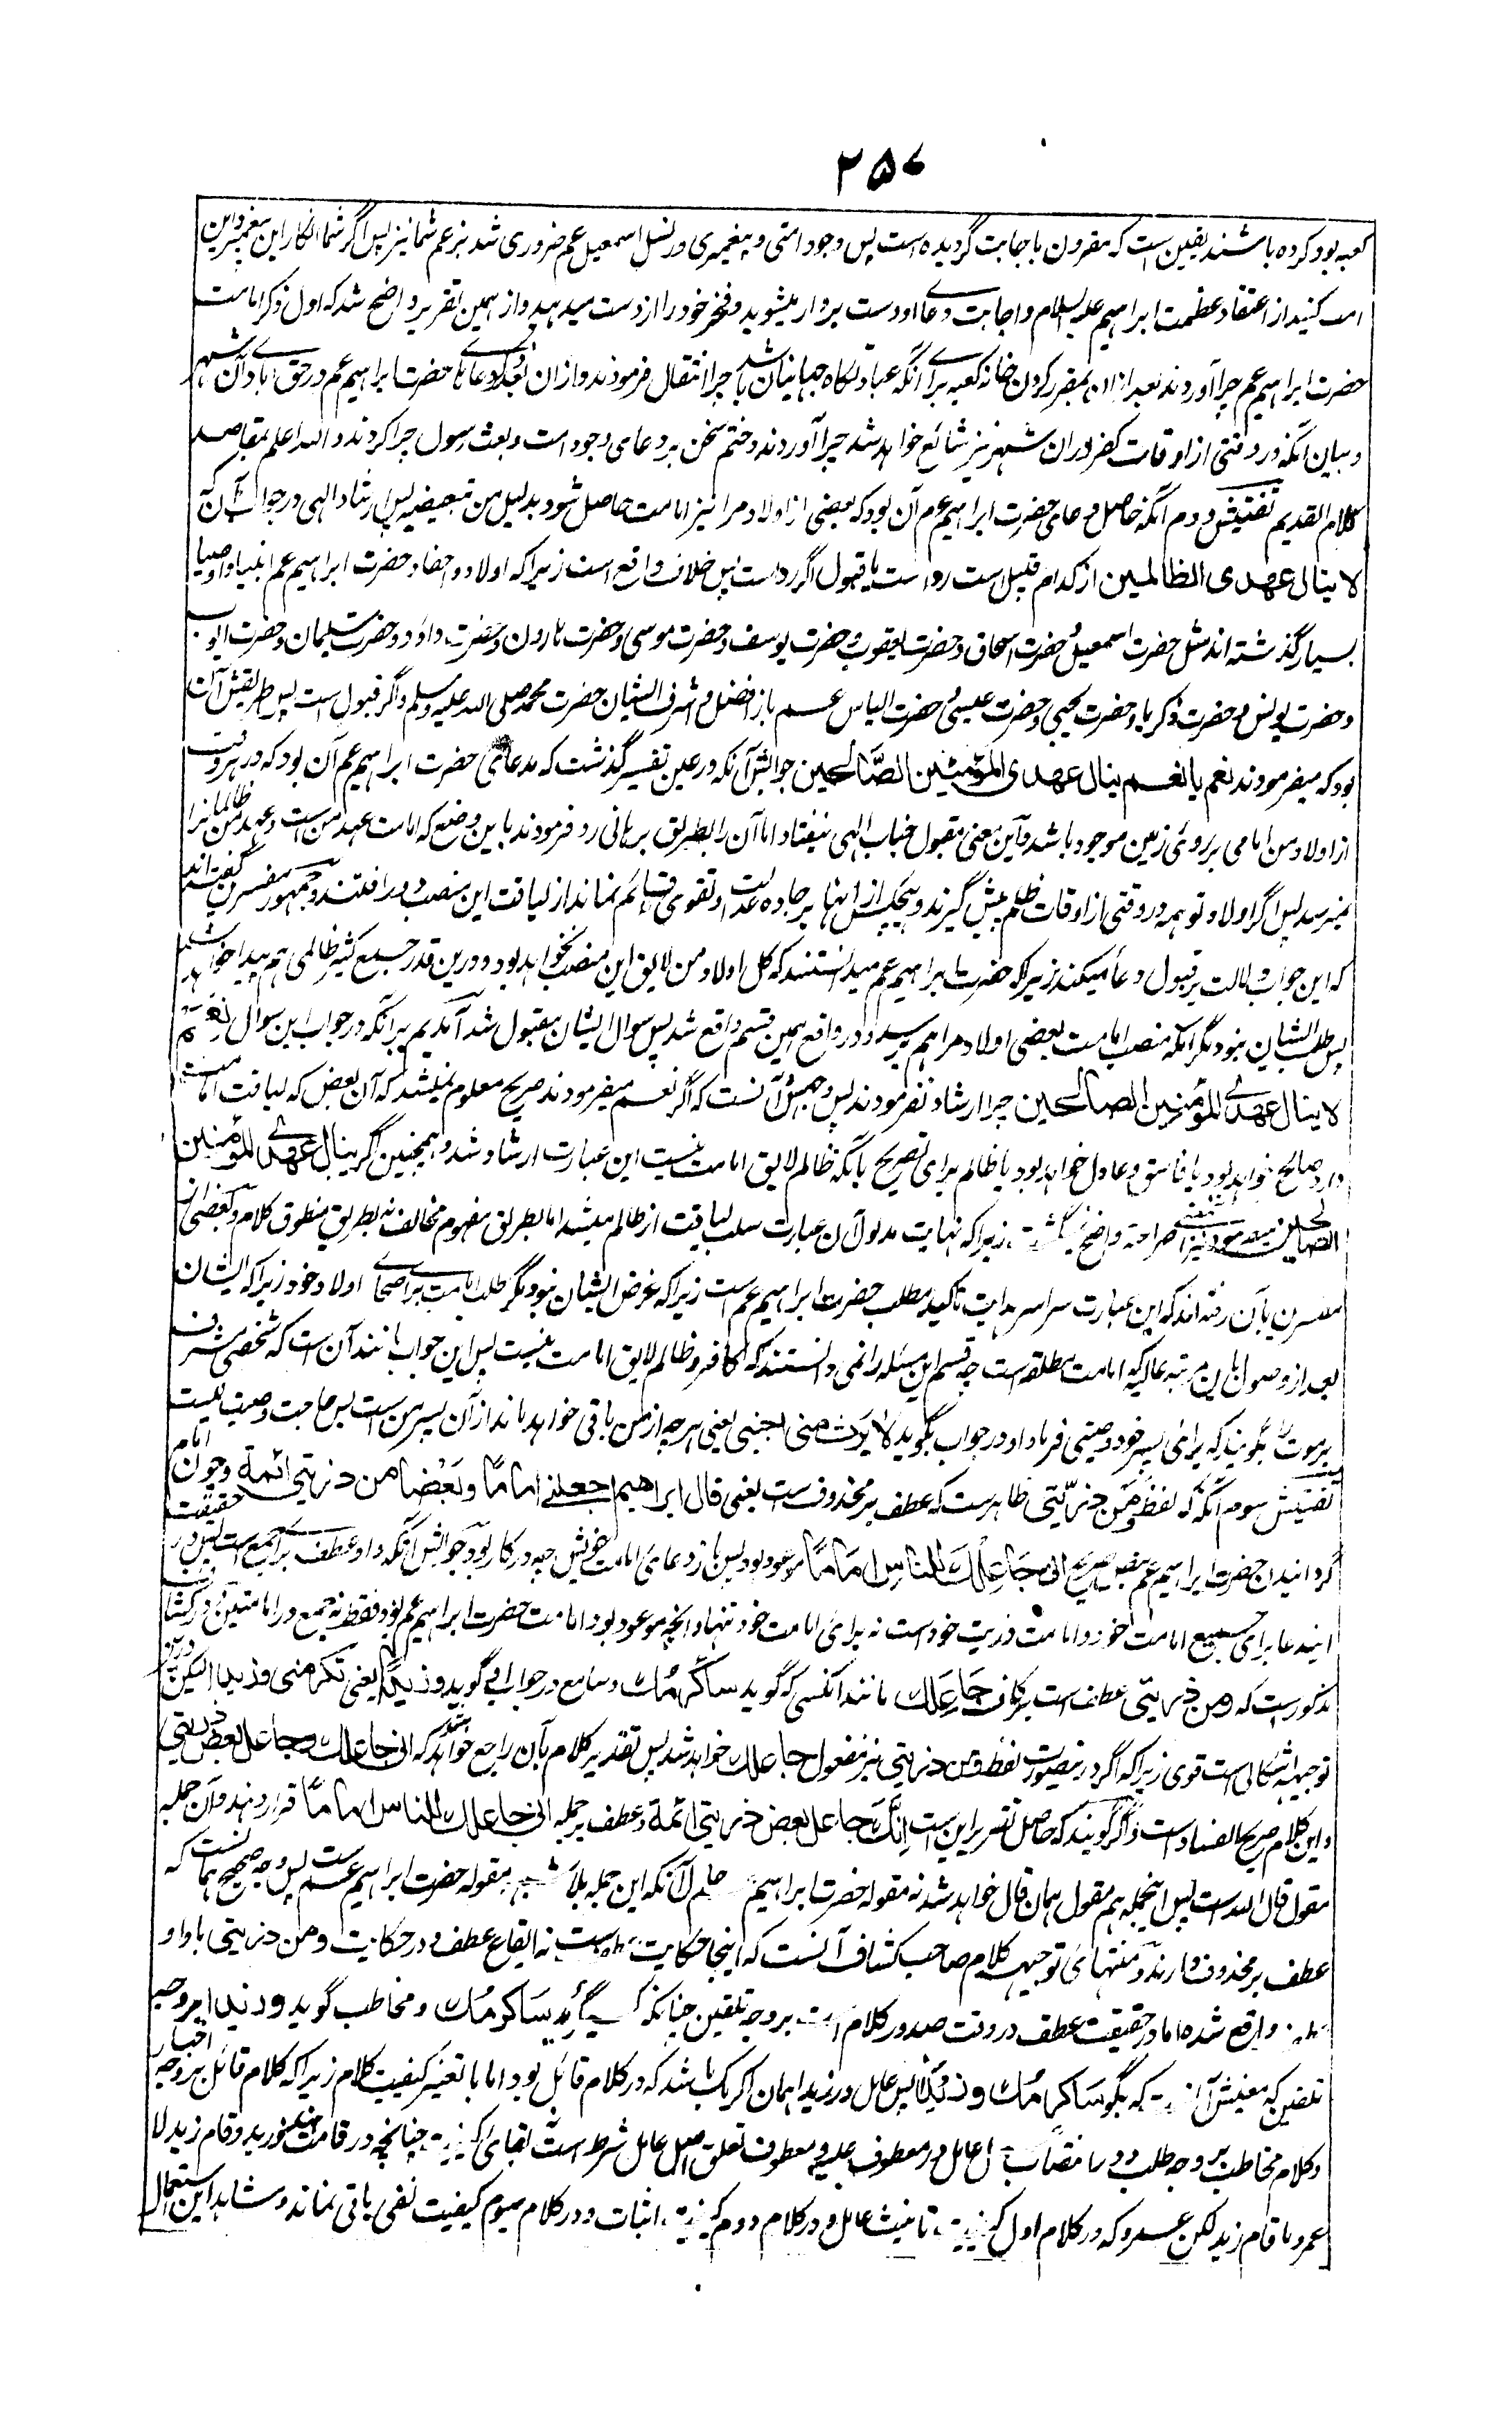 ۲۵۷
کعبه بود کرده باشند یقین است که مقرون باجابت گردیده است پس وجود امتی و پیغمبری در نسل اسمعیل عم ضروری شد بزعم شما نیز پس اگر شما انکار این پیغمبر و این
امت کنید از اعتقاد عظمت ابراهیم علیه السلام و اجابت دعای او دست بردار میشوید و فخر خود را از دست میدهید و از همین تقریر واضح شد که اول ذکر امامت
حضرت ابراهیم عم چرا آوردند بعد ازان بمقرر کردن خانه کعبه برای آنکه عبادتگاه جهانیان باشد چرا انتقال فرمودند و ازان بعد دعای حضرت ابراهیم عم در حق آبادی آن شهر
و بیان آنکه در وقتی از اوقات کفر دران شهر نیز شائع خواهد شد چرا آوردند و ختم سخن بر دعای وجود امت و بعث رسول چرا کردند والله اعلم بمقاصد
کلام القدیم تفتیش دوم آنکه حاصل دعای حضرت ابراهیم عم آن بود که بعضی از اولاد مرا نیز امامت حاصل شود بدلیل من تبعیضیه پس ارشاد الهی در جواب آن که
لا ینال عهدی الظالمین از کدام قبیل است رد است یا قبول اگر رد است پس خلاف واقع است زیرا که اولاد و احفاد حضرت ابراهیم عم انبیا و اوصیا
بسیار گذشته اند مثل حضرت اسمعیل و حضرت اسحاق و حضرت یعقوب و حضرت یوسف و حضرت موسی و حضرت هارون و حضرت داود و حضرت سلیمان و حضرت ایوب
و حضرت یونس و حضرت ذکریا و حضرت یحیی و حضرت عیسی و حضرت الیاس عم باز افضل و اشرف ایشان حضرت محمد صلی الله علیه وسلم و اگر قبول است پس طریقش آن
بود که میفرمودند نعم یا نعم ینال عهدی المؤمنین الصالحین جوابش آنکه در عین تفسیر گذشت که مدعای حضرت ابراهیم عم آن بود که در هر وقت
از اولاد من امامی بر روی زمین موجود باشد و این معنی مقبول جناب الهی نیفتاد اما آن را بطریق برهانی رد فرمودند باین وضع که امامت عهد من است و عهد من ظالمانرا
نمیرسد پس اگر اولاد تو همه در وقتی از اوقات ظلم پیش گیرند و هیچکس از اینها بر جاده عدالت و تقوی قائم نماند از لیاقت این منصب در افتند و جمهور مفسرین گفته اند
که این جواب دلالت بر قبول دعا میکند زیرا که حضرت ابراهیم عم میدانستند که کل اولاد من لایق این منصب نخواهد بود و درین قدر جمع کثیر ظالمی هم پیدا خواهد شد
پس طلب ایشان نبود مگر آنکه منصب امامت بعضی اولاد مرا هم برسد و در واقع همین قسم واقع شد پس سوال ایشان مقبول شد آمدیم برآنکه در جواب این سوال نعم
لا ینال عهدی المؤمنین الصالحین چرا ارشاد نفرمودند پس وجهش آنست که اگر نعم میفرمودند صریح معلوم نمیشد که آن بعض که لیاقت امامت
دارد صالح خواهد بود یا فاسق و عادل خواهد بود یا ظالم برای تصریح بآنکه ظالم لایق امامت نیست این عبارت ارشاد شد و همچنین اگر ینال عهدی المؤمنین
الصالحین میفرمودند صراحة واضح نمیگشت زیرا که نهایت مدلول آن عبارت سلب لیاقت از ظالم میشد اما بطریق مفهوم مخالف نه بطریق منطوق کلام و بعضی از
مفسرین بآن رفته اند که این عبارت سراسر هدایت تاکید مطلب حضرت ابراهیم عم است زیرا که غرض ایشان نبود مگر طلب امامت برای صلحای اولاد خود زیرا که ایشان
بعد از وصول باین مرتبه عالیه که امامت مطلقه است چه قسم این مسئله را نمی دانستند که کافر و ظالم لایق امامت نیست پس این جواب مانند آن است که شخصی مشرف
بر موت را بگویند که برای پسر خود وصیتی فرما و او در جواب بگوید لا یرث منی اجنبی یعنی هرچه از من باقی خواهد ماند از آن پسر من است پس حاجت وصیت نیست
تفتیش سوم آنکه لفظ و من ذریتی ظاهر است که عطف بر محذوف است یعنی قال ابراهیم اجعلنی اماما و بعضا من ذریتی ائمة و چون امام
گردانیدن حضرت ابراهیم عم بنص صریح انی جاعلک للناس اماما موعود بود پس باز دعای امامت خویش چه درکار بود جوابش آنکه واو عطف برای جمع است پس در حقیقت
ایندعا برای جمع امامت خود و امامت ذریت خود است نه برای امامت خود تنها و آنچه موعود بود امامت حضرت ابراهیم عم بود فقط نه جمع در امامتین و در کشاف
مذکور است که و من ذریتی عطف است بر کاف جاعلک مانند آنکسی که گوید ساکرمک و سامع در جواب می گوید و زیدا یعنی تکرمنی و زیدا لیکن درین
توجیه اشکالی است قوی زیرا که اگر درینصورت لفظ و من ذریتی نیز مفعول جاعلک خواهد شد پس تقدیر کلام بآن راجع خواهد شد که انی جاعلک و جاعل بعض ذریتی
و این کلام صریح الفساد است و اگر گویند که حاصل تقریر این است انک جاعل بعض ذریتی ائمة و عطف بر جمله انی جاعلک للناس اماما قرار دهند و آن جمله
مقول قال الله است پس اینجمله هم مقول همان قال خواهد شد نه مقوله حضرت ابراهیم حالانکه این جمله بلاشبه مقوله حضرت ابراهیم عم است پس وجه صحیح همانست که
عطف بر محذوف دارند و منتهای توجیه کلام صاحب کشاف آنست که اینجا حکایت است نه ایقاع عطف و در حکایت و من ذریتی با واو
واقع شده اما در حقیقت عطف در وقت صدور کلام است بر وجه تلقین چنانکه گوید ساکرمک و مخاطب گوید و زیدا بر وجه
تلقین که معنیش آنست که بگو ساکرمک و زیدا پس عامل در زیدا همان اکرمک باشد که در کلام قائل بود اما با تغیر کیفیت کلام زیرا که کلام قائل بر وجه اخبار
و کلام مخاطب بر وجه طلب و در عامل در معطوف علیه و معطوف تعلق اصل عامل شرط است نه بقای کیفیت چنانچه در قامت هند و زید و قام زید لا
عمرو ما قام زید لکن عمرو که در کلام اول کیفیت تانیث عامل و در کلام دوم کیفیت اثبات و در کلام سیوم کیفیت نفی باقی نماند و شاهد این استعمال